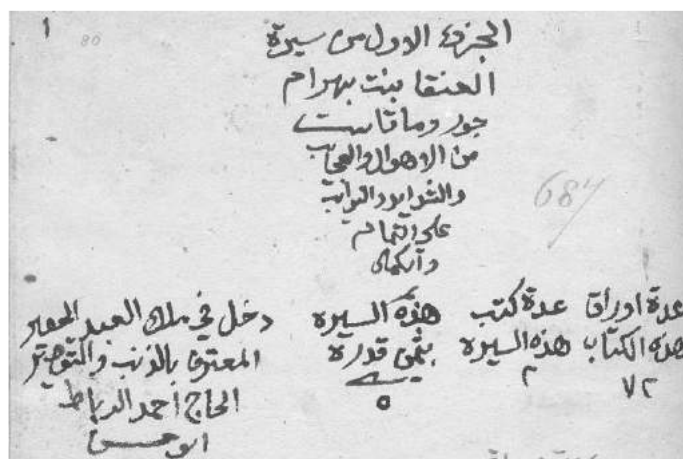 1
80
الجزء الاول من سيرة
العنقا بنت بهرام
جور وما قاست
من الاهوال والعجايب
والشدايد والنوايب
على التمام
والكمال
684
عدة اوراق
هذه الكتاب
٧٢
عدة كتب
هذه السيره
٢
هذه السيره
بثمن قدره
٥
دخل في ملك العبد الحقير
المعترف بالذنب والتقصير
الحاج احمد الرباط
ابو حسن